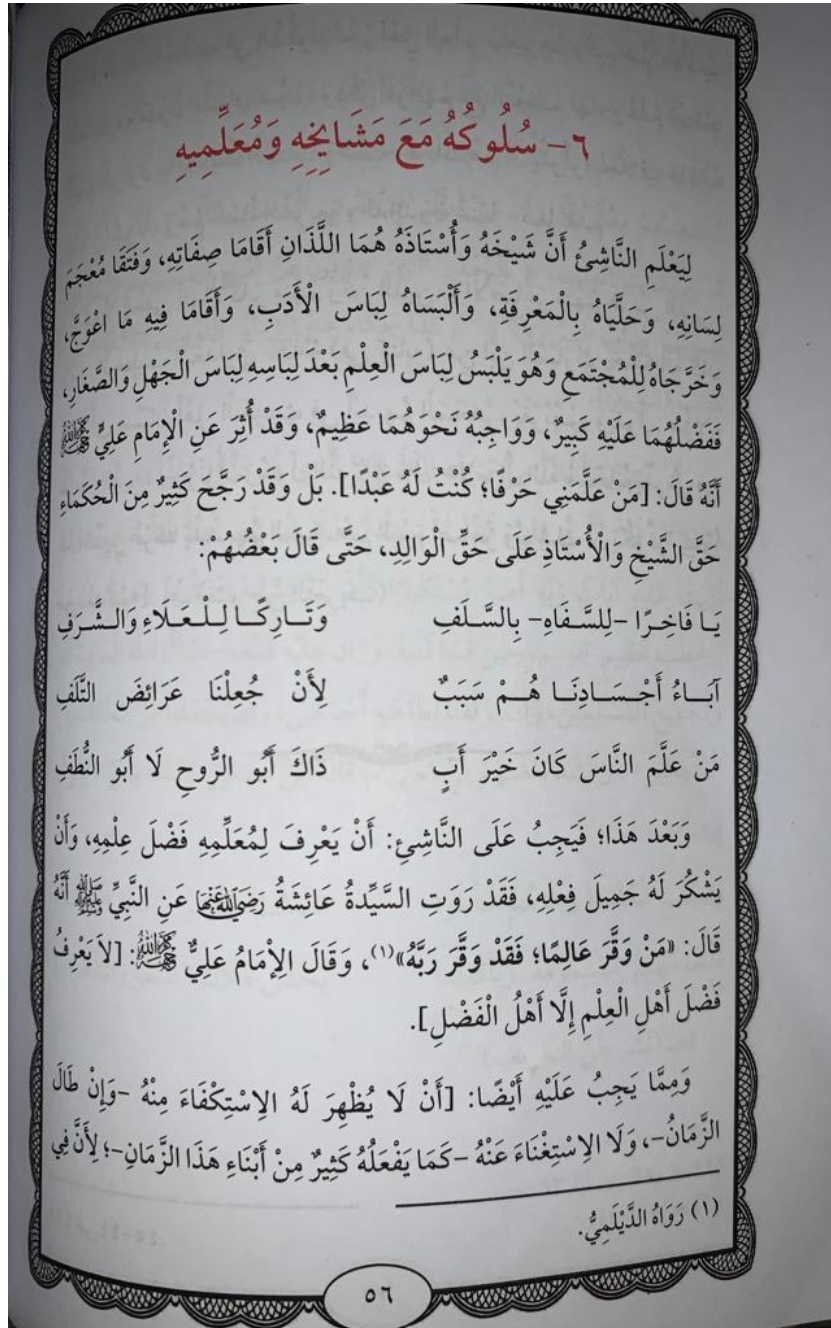 ٦- سُلُوكُهُ مَعَ مَشَايِخِهِ وَمُعَلِّمِيهِ
لِيَعْلَمِ النَّاشِئُ أَنَّ شَيْخَهُ وَأُسْتَاذَهُ هُمَا اللَّذَانِ أَقَامَا صِفَاتِهِ، وَفَتَقَا مُعْجَمَ
لِسَانِهِ، وَحَلَّيَاهُ بِالْمَعْرِفَةِ، وَأَلْبَسَاهُ لِبَاسَ الْأَدَبِ، وَأَقَامَا فِيهِ مَا اعْوَجَّ،
وَخَرَّجَاهُ لِلْمُجْتَمَعِ وَهُوَ يَلْبَسُ لِبَاسَ الْعِلْمِ بَعْدَ لِبَاسِهِ لِبَاسَ الْجَهْلِ وَالصَّغَارِ،
فَفَضْلُهُمَا عَلَيْهِ كَبِيرٌ، وَوَاجِبُهُ نَحْوَهُمَا عَظِيمٌ، وَقَدْ أُثِرَ عَنِ الْإِمَامِ عَلِيٍّ
أَنَّهُ قَالَ: [مَنْ عَلَّمَنِي حَرْفًا؛ كُنْتُ لَهُ عَبْدًا]. بَلْ وَقَدْ رَجَّحَ كَثِيرٌ مِنَ الْحُكَمَاءِ
حَقَّ الشَّيْخِ وَالْأُسْتَاذِ عَلَى حَقِّ الْوَالِدِ، حَتَّى قَالَ بَعْضُهُمْ:
يَا فَاخِرًا -لِلسَّفَاهِ- بِالسَّلَفِ وَتَارِكًا لِلْعَلَاءِ وَالشَّرَفِ
آبَاءُ أَجْسَادِنَا هُمْ سَبَبٌ لِأَنْ جُعِلْنَا عَرَائِضَ التَّلَفِ
مَنْ عَلَّمَ النَّاسَ كَانَ خَيْرَ أَبٍ ذَاكَ أَبُو الرُّوحِ لَا أَبُو النُّطَفِ
وَبَعْدَ هَذَا؛ فَيَجِبُ عَلَى النَّاشِئِ: أَنْ يَعْرِفَ لِمُعَلِّمِهِ فَضْلَ عِلْمِهِ، وَأَنْ
يَشْكُرَ لَهُ جَمِيلَ فِعْلِهِ، فَقَدْ رَوَتِ السَّيِّدَةُ عَائِشَةُ رَضِيَ اللَّهُ عَنْهَا عَنِ النَّبِيِّ ﷺ أَنَّهُ
قَالَ: «مَنْ وَقَّرَ عَالِمًا؛ فَقَدْ وَقَّرَ رَبَّهُ»(١)، وَقَالَ الْإِمَامُ عَلِيٌّ: [لاَ يَعْرِفُ
فَضْلَ أَهْلِ الْعِلْمِ إِلَّا أَهْلُ الْفَضْلِ].
وَمِمَّا يَجِبُ عَلَيْهِ أَيْضًا: [أَنْ لَا يُظْهِرَ لَهُ الِاسْتِكْفَاءَ مِنْهُ -وَإِنْ طَالَ
الزَّمَانُ-، وَلَا الِاسْتِغْنَاءَ عَنْهُ -كَمَا يَفْعَلُهُ كَثِيرٌ مِنْ أَبْنَاءِ هَذَا الزَّمَانِ-؛ لِأَنَّ فِي
(١) رَوَاهُ الدَّيْلَمِيُّ.
٥٦